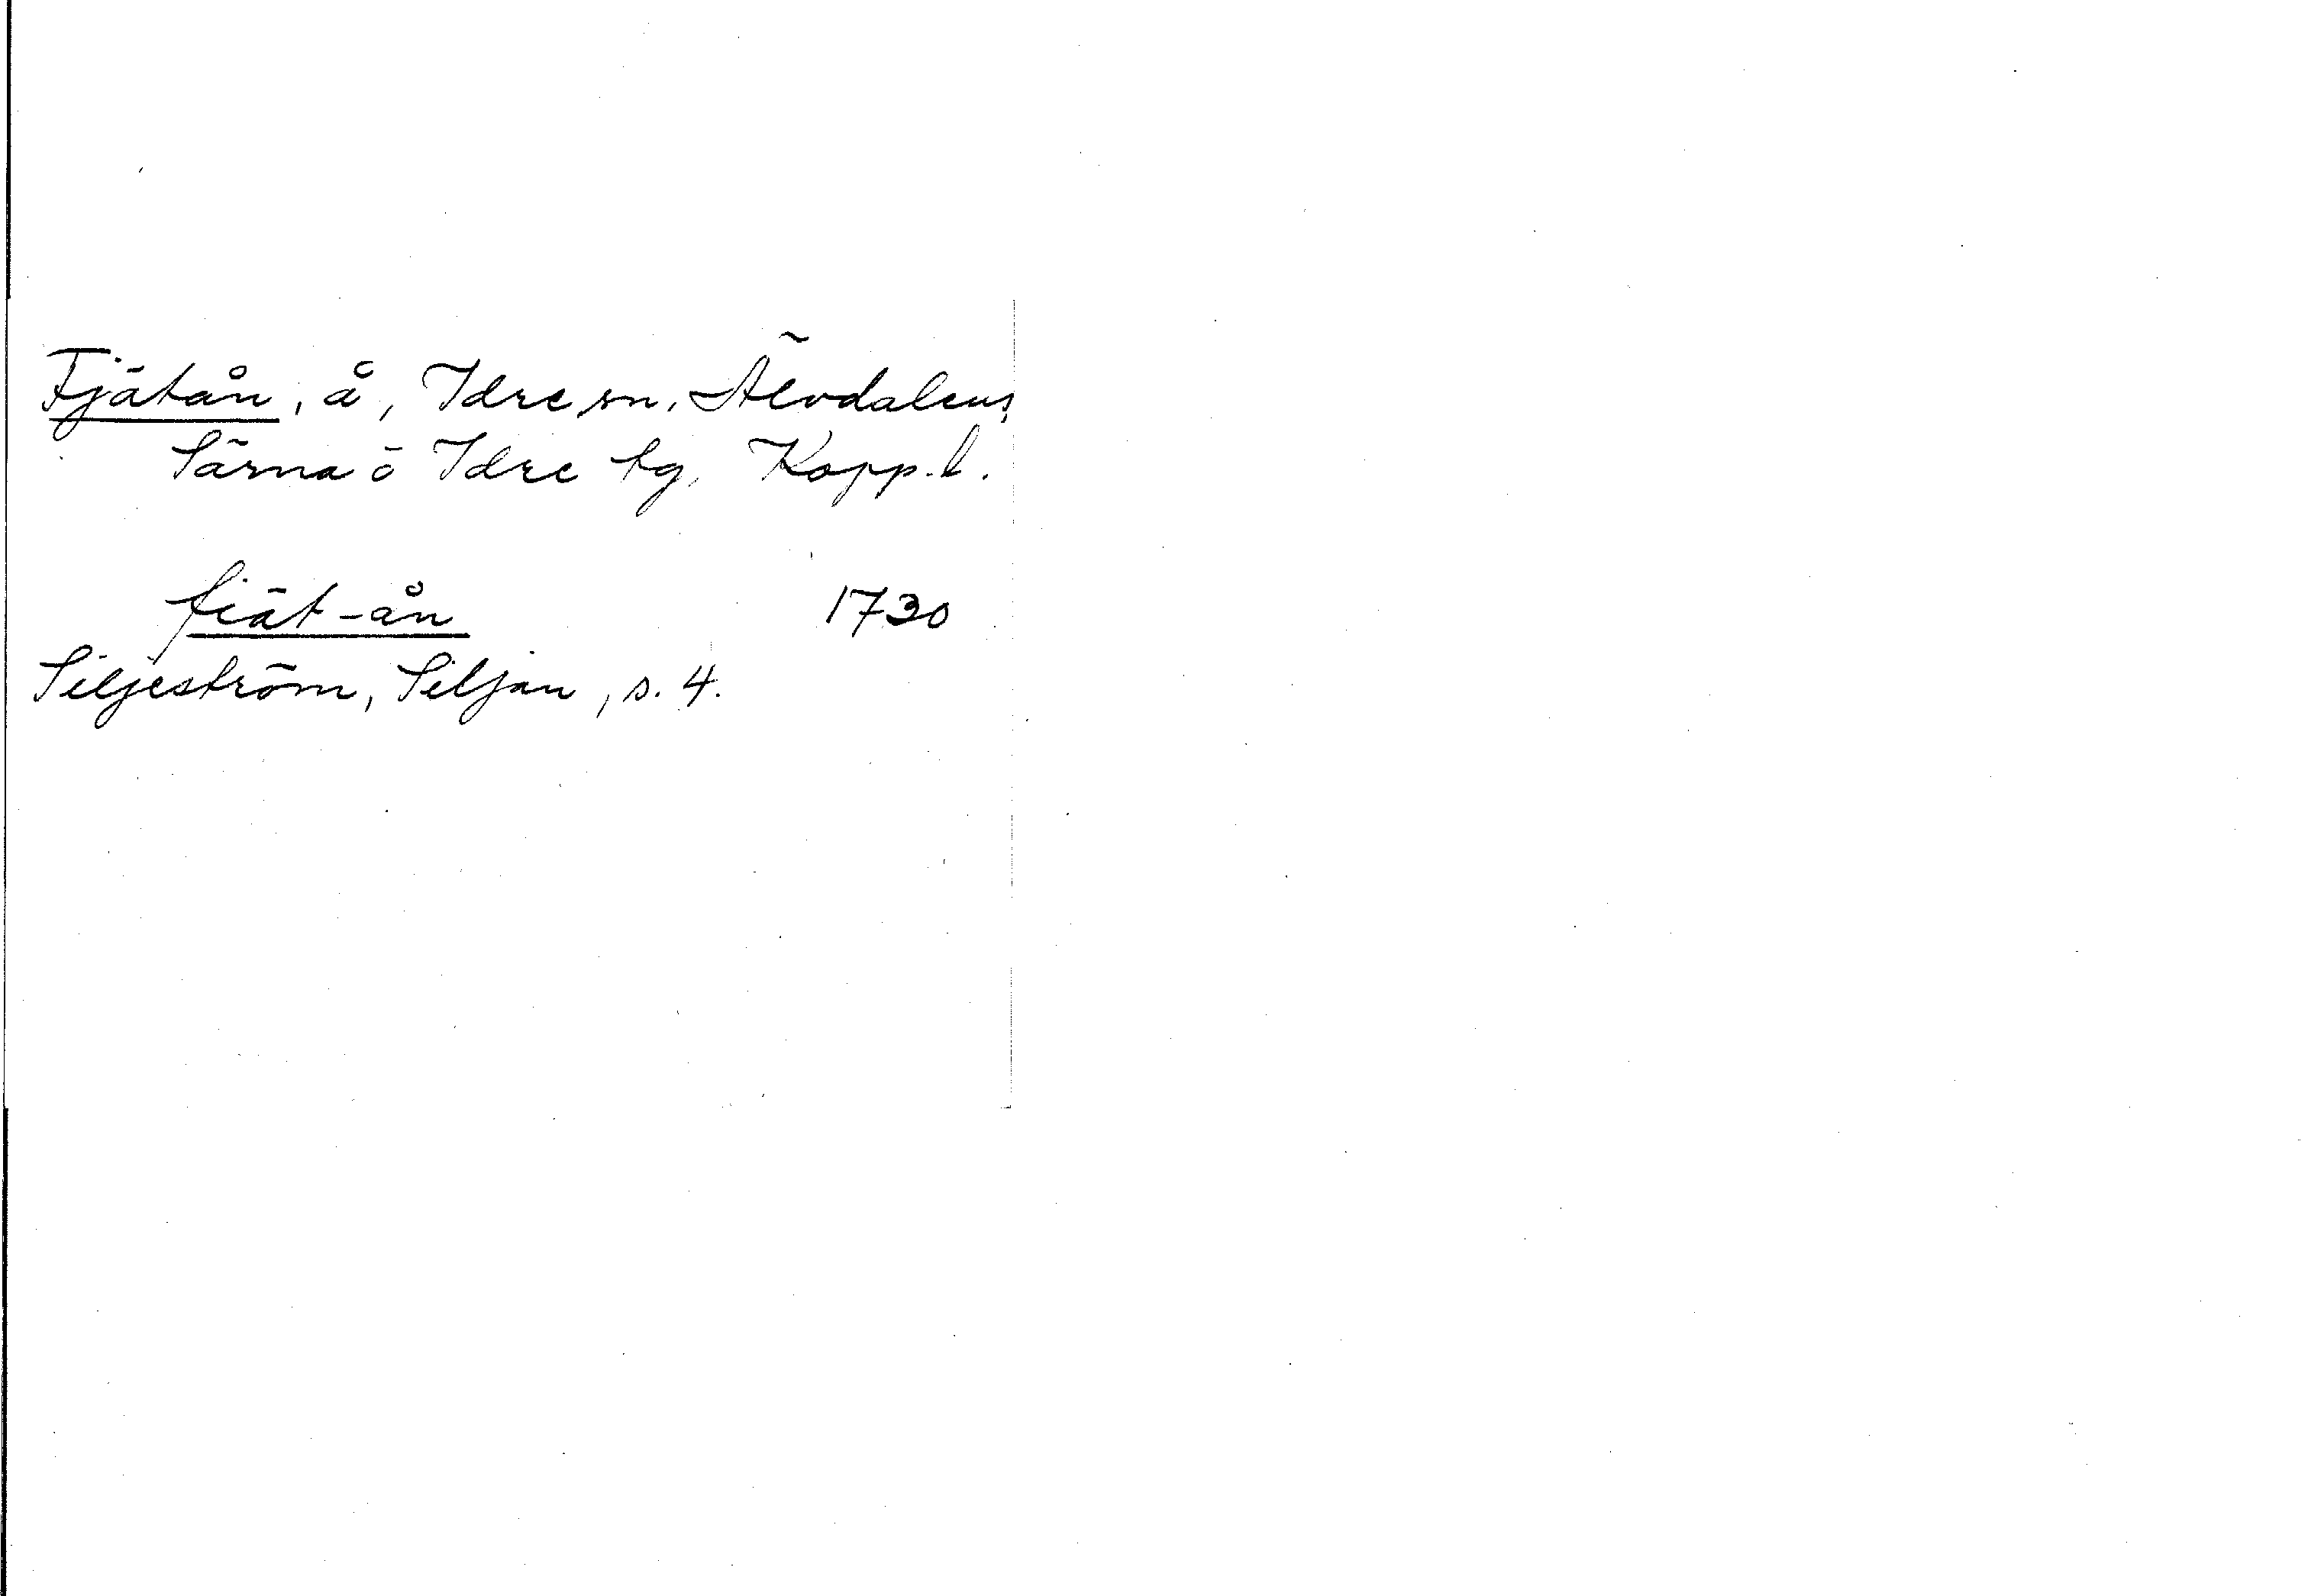 Fjätån, å, Idre sn, Älvdalens,
Särna o Idre tg, Kopp.l.
fiät-ån 1730
Siljeström, Siljan, s. 4.